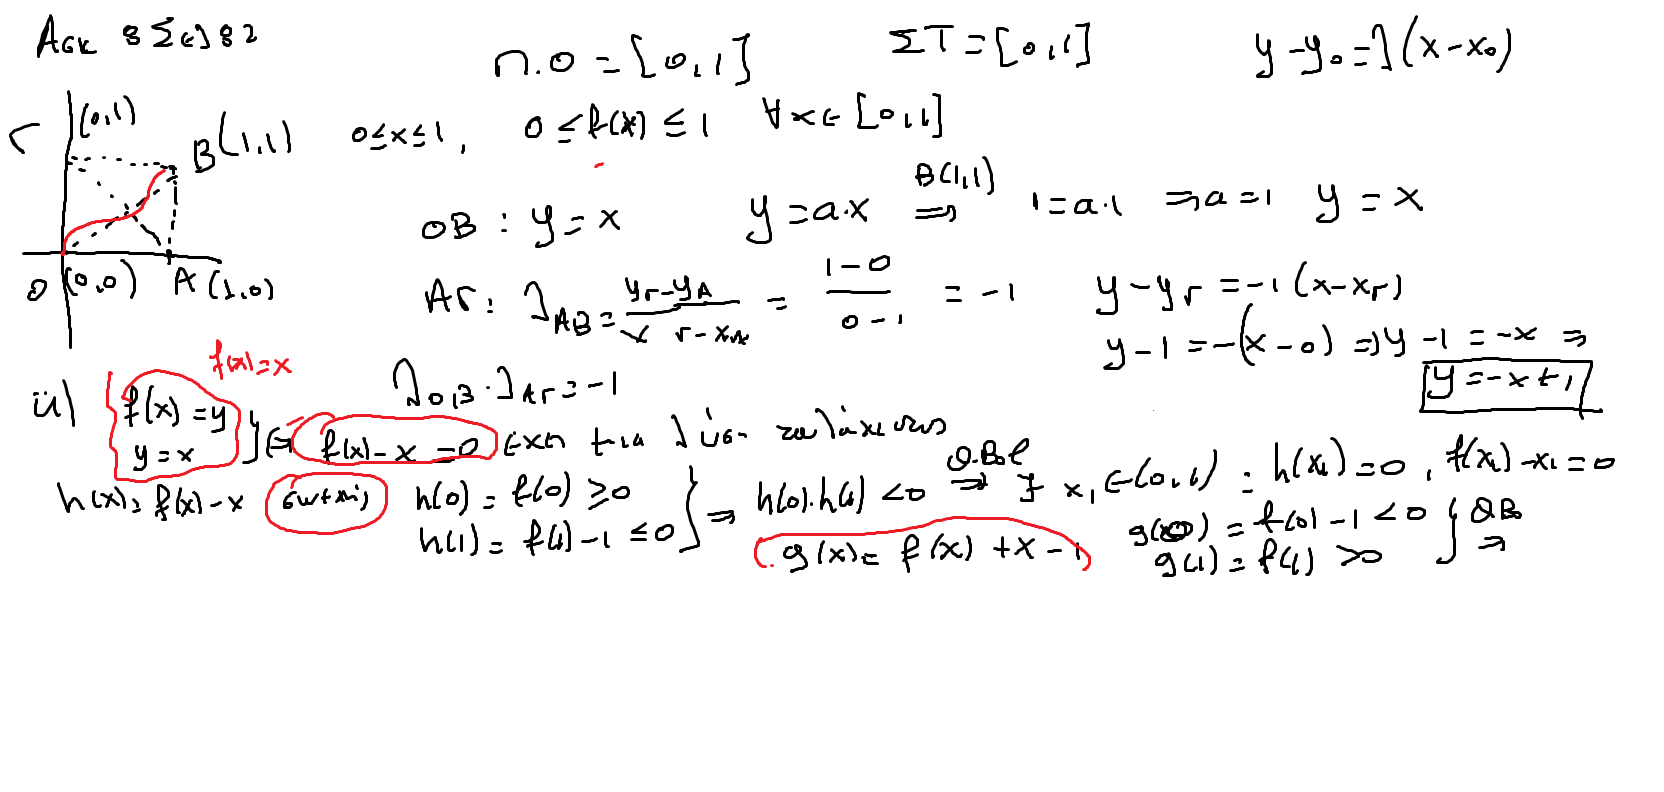 Ασκ 8 Σελ 82
Π.Ο = [0,1]   ΣΤ = [0,1]   y - y₀ = λ(x - x₀)
Γ (0,1)   B(1,1)   0 ≤ x ≤ 1,   0 ≤ f(x) ≤ 1   ∀x ∈ [0,1]
OB : y = x   y = a·x   B(1,1) ⇒   1 = a·1   ⇒ a = 1   y = x
O (0,0)   A (1,0)
ΑΓ: λ_AB = (y_Γ - y_A)/(x_Γ - x_A) = (1-0)/(0-1) = -1   y - y_Γ = -1(x - x_Γ)
y - 1 = -(x - 0) ⇒ y - 1 = -x ⇒
y = -x + 1
f(x) = x
λ_OB · λ_ΑΓ = -1
ii) f(x) = y
y = x } ⇔ f(x) - x = 0 έχει μια λύση τουλάχιστον
h(x) = f(x) - x συνεχής   h(0) = f(0) ≥ 0
h(1) = f(1) - 1 ≤ 0 } ⇒ h(0)·h(1) < 0 Θ.Bol ⇒ ∃ x₁ ∈ (0,1) : h(x₁) = 0, f(x₁) - x₁ = 0
g(x) = f(x) + x - 1   g(0) = f(0) - 1 < 0
g(1) = f(1) > 0 } ΘBo ⇒